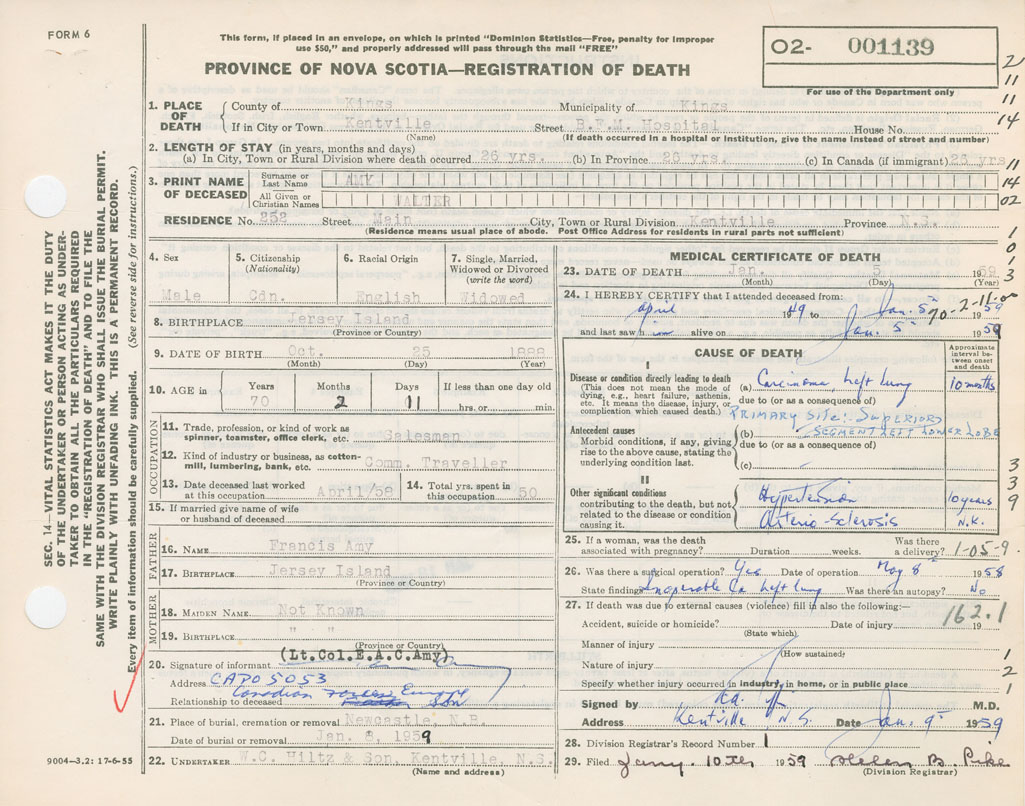 FORM 6
This form, if placed in an envelope, on which is printed "Dominion Statistics—Free, penalty for improper
use $50," and properly addressed will pass through the mail "FREE"
PROVINCE OF NOVA SCOTIA—REGISTRATION OF DEATH
O2- 001139
For use of the Department only
2
11
11
14
11
14
02
1
0
1
0
3
SEC. 14—VITAL STATISTICS ACT MAKES IT THE DUTY
OF THE UNDERTAKER OR PERSON ACTING AS UNDER-
TAKER TO OBTAIN ALL THE PARTICULARS REQUIRED
IN THE "REGISTRATION OF DEATH" AND TO FILE THE
SAME WITH THE DIVISION REGISTRAR WHO SHALL ISSUE THE BURIAL PERMIT.
WRITE PLAINLY WITH UNFADING INK. THIS IS A PERMANENT RECORD.
Every item of information should be carefully supplied. (See reverse side for instructions.)
1. PLACE OF DEATH
County of Kings Municipality of Kings
If in City or Town Kentville Street B.F.M. Hospital House No.
(Name) (If death occurred in a hospital or institution, give the name instead of street and number)
2. LENGTH OF STAY (in years, months and days)
(a) In City, Town or Rural Division where death occurred 26 yrs. (b) In Province 26 yrs. (c) In Canada (if immigrant) 26 yrs
3. PRINT NAME OF DECEASED
Surname or Last Name AMY
All Given or Christian Names WALTER
RESIDENCE No. 252 Street Main City, Town or Rural Division Kentville Province N.S.
(Residence means usual place of abode. Post Office Address for residents in rural parts not sufficient)
4. Sex
Male
5. Citizenship
(Nationality)
Cdn.
6. Racial Origin
English
7. Single, Married,
Widowed or Divorced
(write the word)
Widowed
8. BIRTHPLACE Jersey Island
(Province or Country)
9. DATE OF BIRTH Oct. 25 1888
(Month) (Day) (Year)
10. AGE in
Years Months Days If less than one day old
70 2 11 hrs. or min.
OCCUPATION
11. Trade, profession, or kind of work as
spinner, teamster, office clerk, etc. Salesman
12. Kind of industry or business, as cotton-
mill, lumbering, bank, etc. Comm. Traveller
13. Date deceased last worked
at this occupation April/58
14. Total yrs. spent in
this occupation 50
15. If married give name of wife
or husband of deceased
FATHER
16. NAME Francis Amy
17. BIRTHPLACE Jersey Island
(Province or Country)
MOTHER
18. MAIDEN NAME Not Known
19. BIRTHPLACE " "
(Province or Country)
(Lt.Col.E.A.C.Amy)
20. Signature of informant
Address CAPO 5053
Canadian Forces Europe
Relationship to deceased Son
21. Place of burial, cremation or removal Newcastle, N.B.
Date of burial or removal Jan. 8, 1959
22. UNDERTAKER W.C. Hiltz & Son, Kentville, N.S.
(Name and address)
9004—3.2: 17-6-55
MEDICAL CERTIFICATE OF DEATH
23. DATE OF DEATH Jan. 5 1959
(Month) (Day) (Year)
24. I HEREBY CERTIFY that I attended deceased from:
April 1949 to Jan. 5th 1959
70-2-11-00
and last saw him alive on Jan. 5th 1959
CAUSE OF DEATH
Approximate
interval be-
tween onset
and death
I
Disease or condition directly leading to death
(This does not mean the mode of
dying, e.g., heart failure, asthenia,
etc. It means the disease, injury, or
complication which caused death.)
(a) Carcinoma left lung 10 months
due to (or as a consequence of)
PRIMARY SITE: SUPERIOR
SEGMENT LEFT LOWER LOBE
Antecedent causes
Morbid conditions, if any, giving
rise to the above cause, stating the
underlying condition last.
(b)
due to (or as a consequence of)
(c)
II
Other significant conditions
contributing to the death, but not
related to the disease or condition
causing it.
Hypertension 10 years
Arterio-sclerosis N.K.
3
3
9
25. If a woman, was the death
associated with pregnancy? Duration weeks. Was there
a delivery? 1-05-9
26. Was there a surgical operation? Yes Date of operation May 8th 1958
State findings Inoperable Ca left lung Was there an autopsy? No
27. If death was due to external causes (violence) fill in also the following:—
162.1
Accident, suicide or homicide? Date of injury 19
(State which)
Manner of injury
(How sustained)
Nature of injury
Specify whether injury occurred in industry, in home, or in public place
1
2
1
Signed by M.D.
Address Kentville N.S. Date Jan. 9th 1959
28. Division Registrar's Record Number 1
29. Filed Jany. 10th 1959 Helen B. Pike
(Division Registrar)